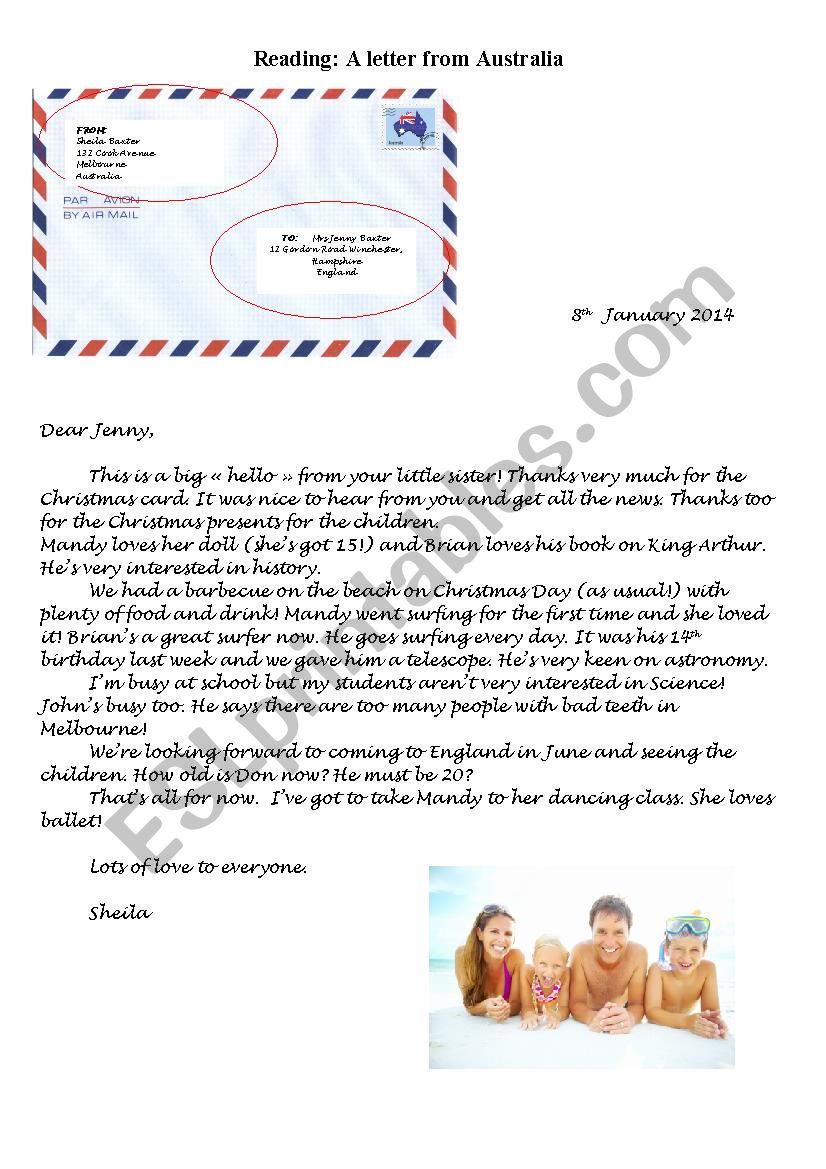 Reading: A letter from Australia
FROM:
Sheila Baxter
132 Cook Avenue
Melbourne
Australia
PAR AVION
BY AIR MAIL
TO: Mrs Jenny Baxter
12 Gordon Road Winchester,
Hampshire
England
8th January 2014
Dear Jenny,
This is a big « hello » from your little sister! Thanks very much for the
Christmas card. It was nice to hear from you and get all the news. Thanks too
for the Christmas presents for the children.
Mandy loves her doll (she's got 15!) and Brian loves his book on King Arthur.
He's very interested in history.
We had a barbecue on the beach on Christmas Day (as usual!) with
plenty of food and drink! Mandy went surfing for the first time and she loved
it! Brian's a great surfer now. He goes surfing every day. It was his 14th
birthday last week and we gave him a telescope. He's very keen on astronomy.
I'm busy at school but my students aren't very interested in Science!
John's busy too. He says there are too many people with bad teeth in
Melbourne!
We're looking forward to coming to England in June and seeing the
children. How old is Don now? He must be 20?
That's all for now. I've got to take Mandy to her dancing class. She loves
ballet!
Lots of love to everyone.
Sheila
ESLprintables.com